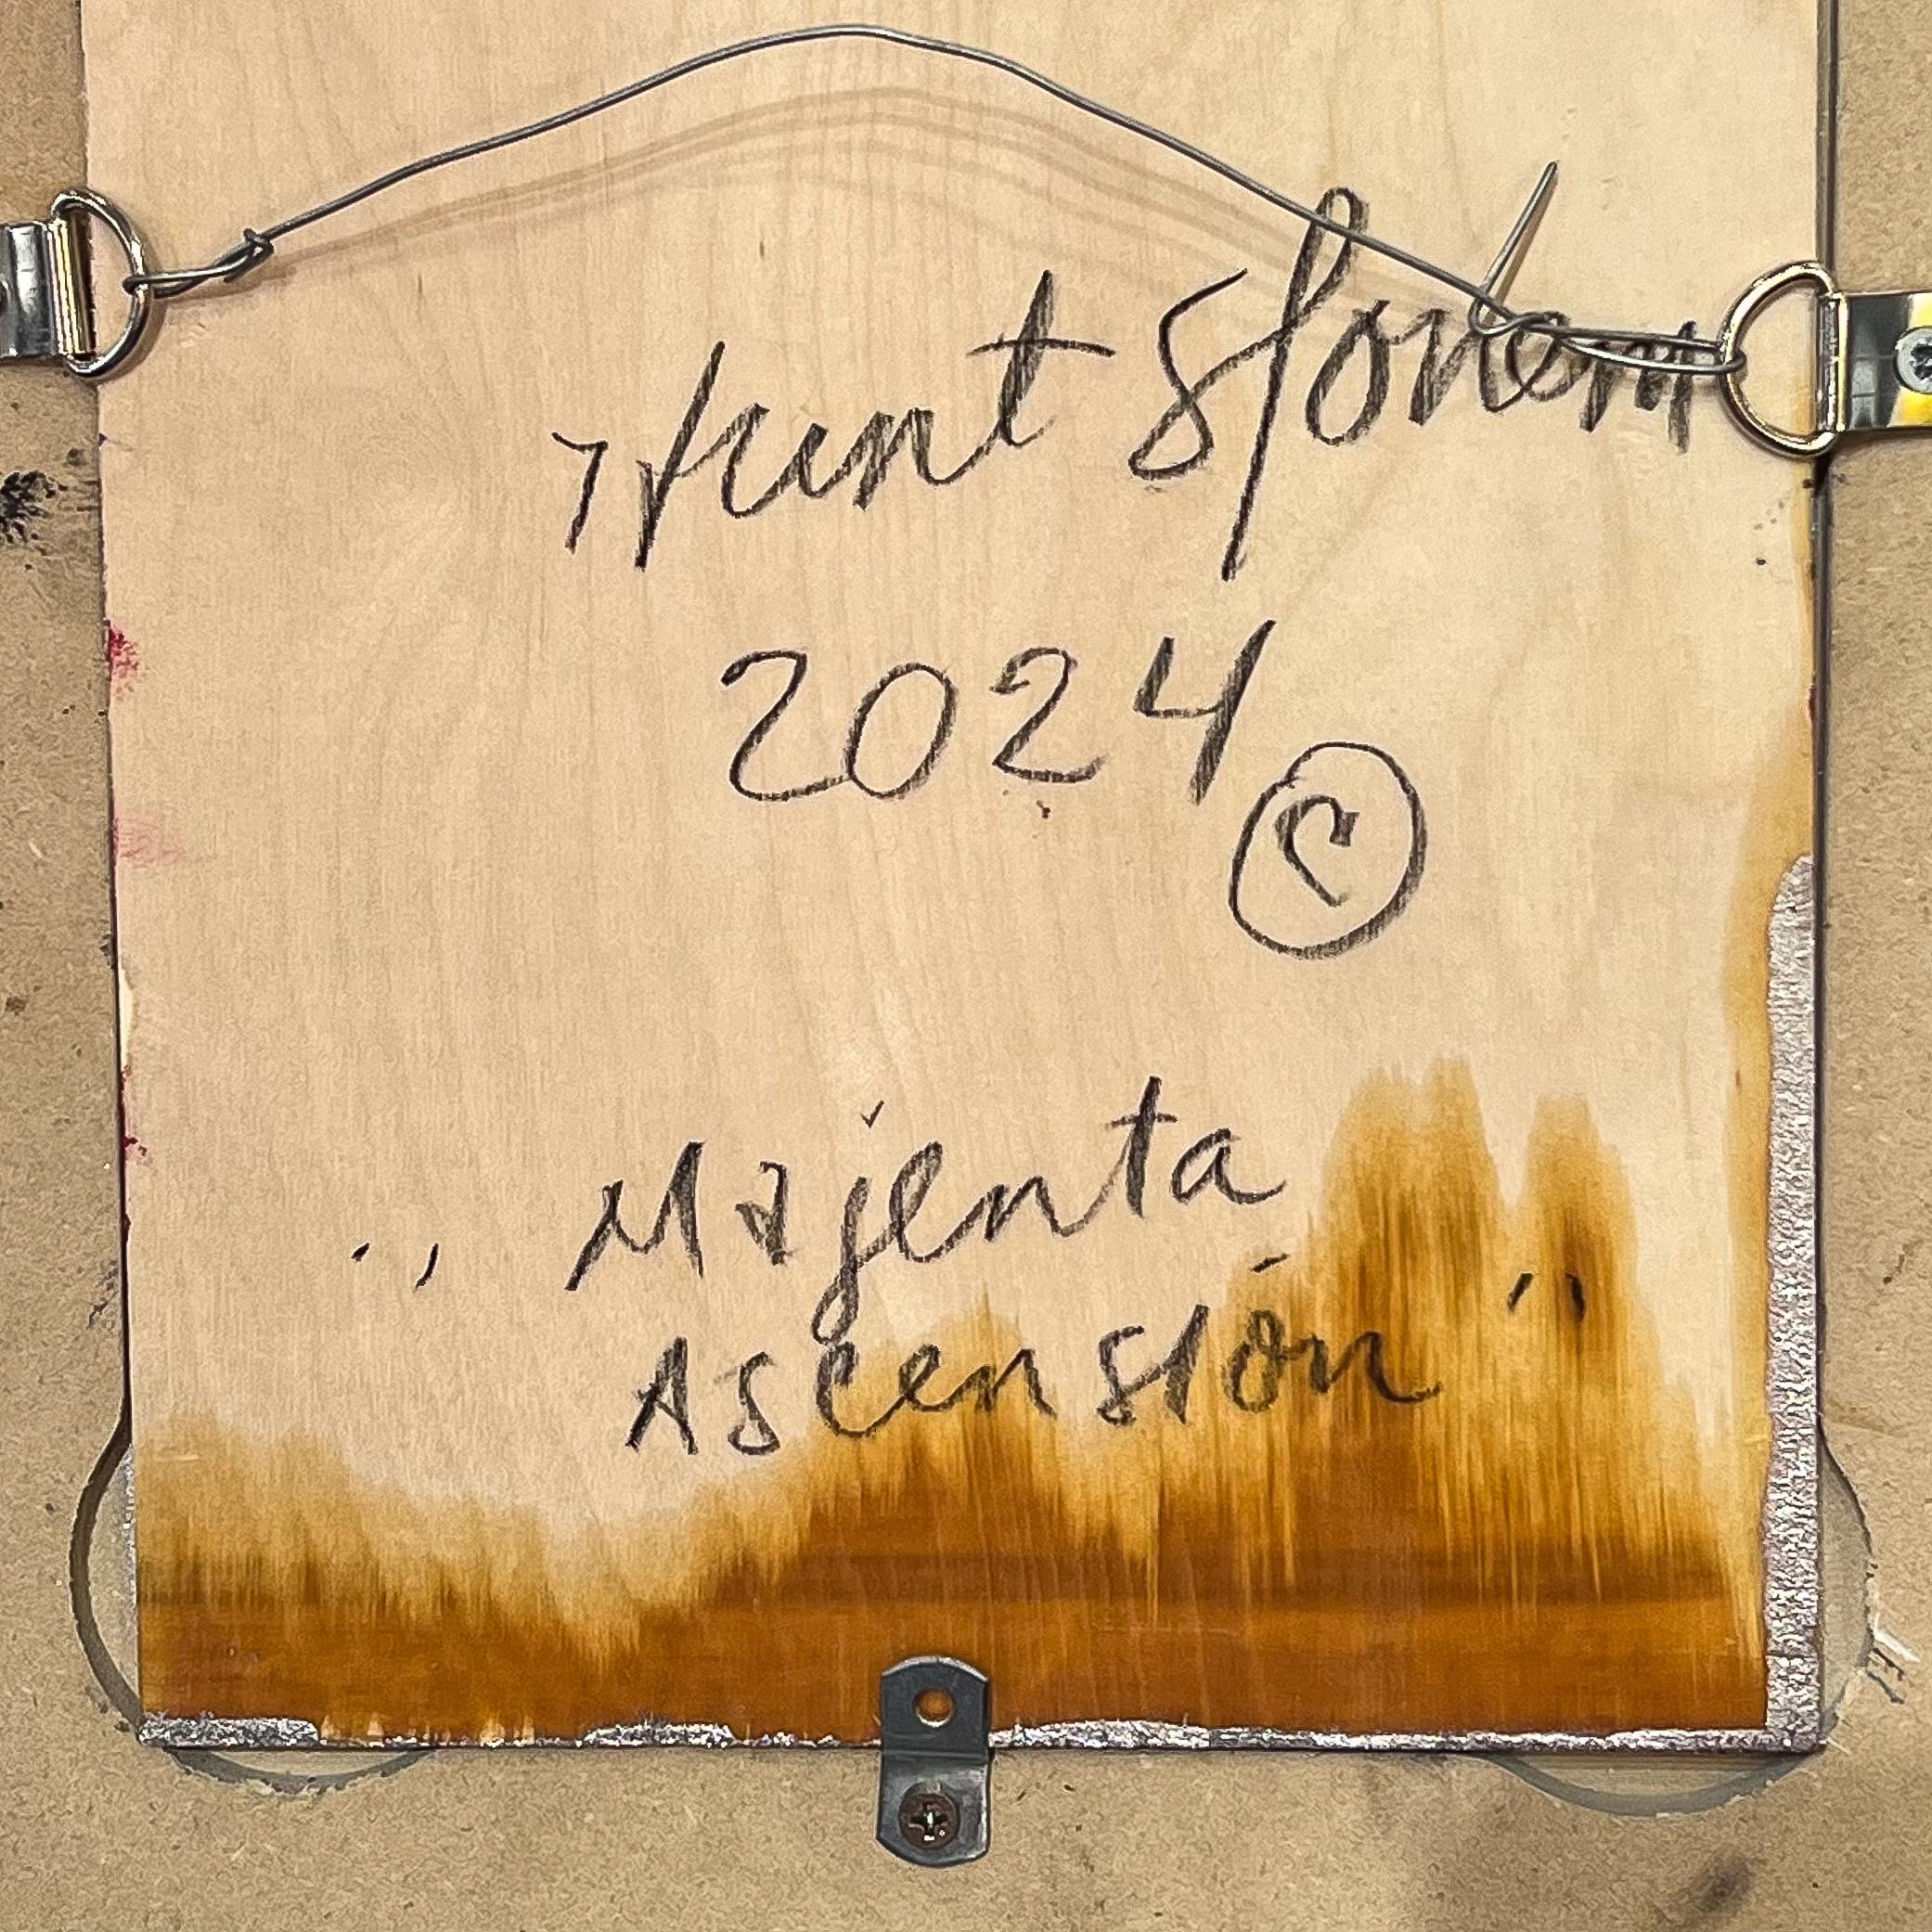 Hunt Slonem
2024
©
"Majenta
Ascension"